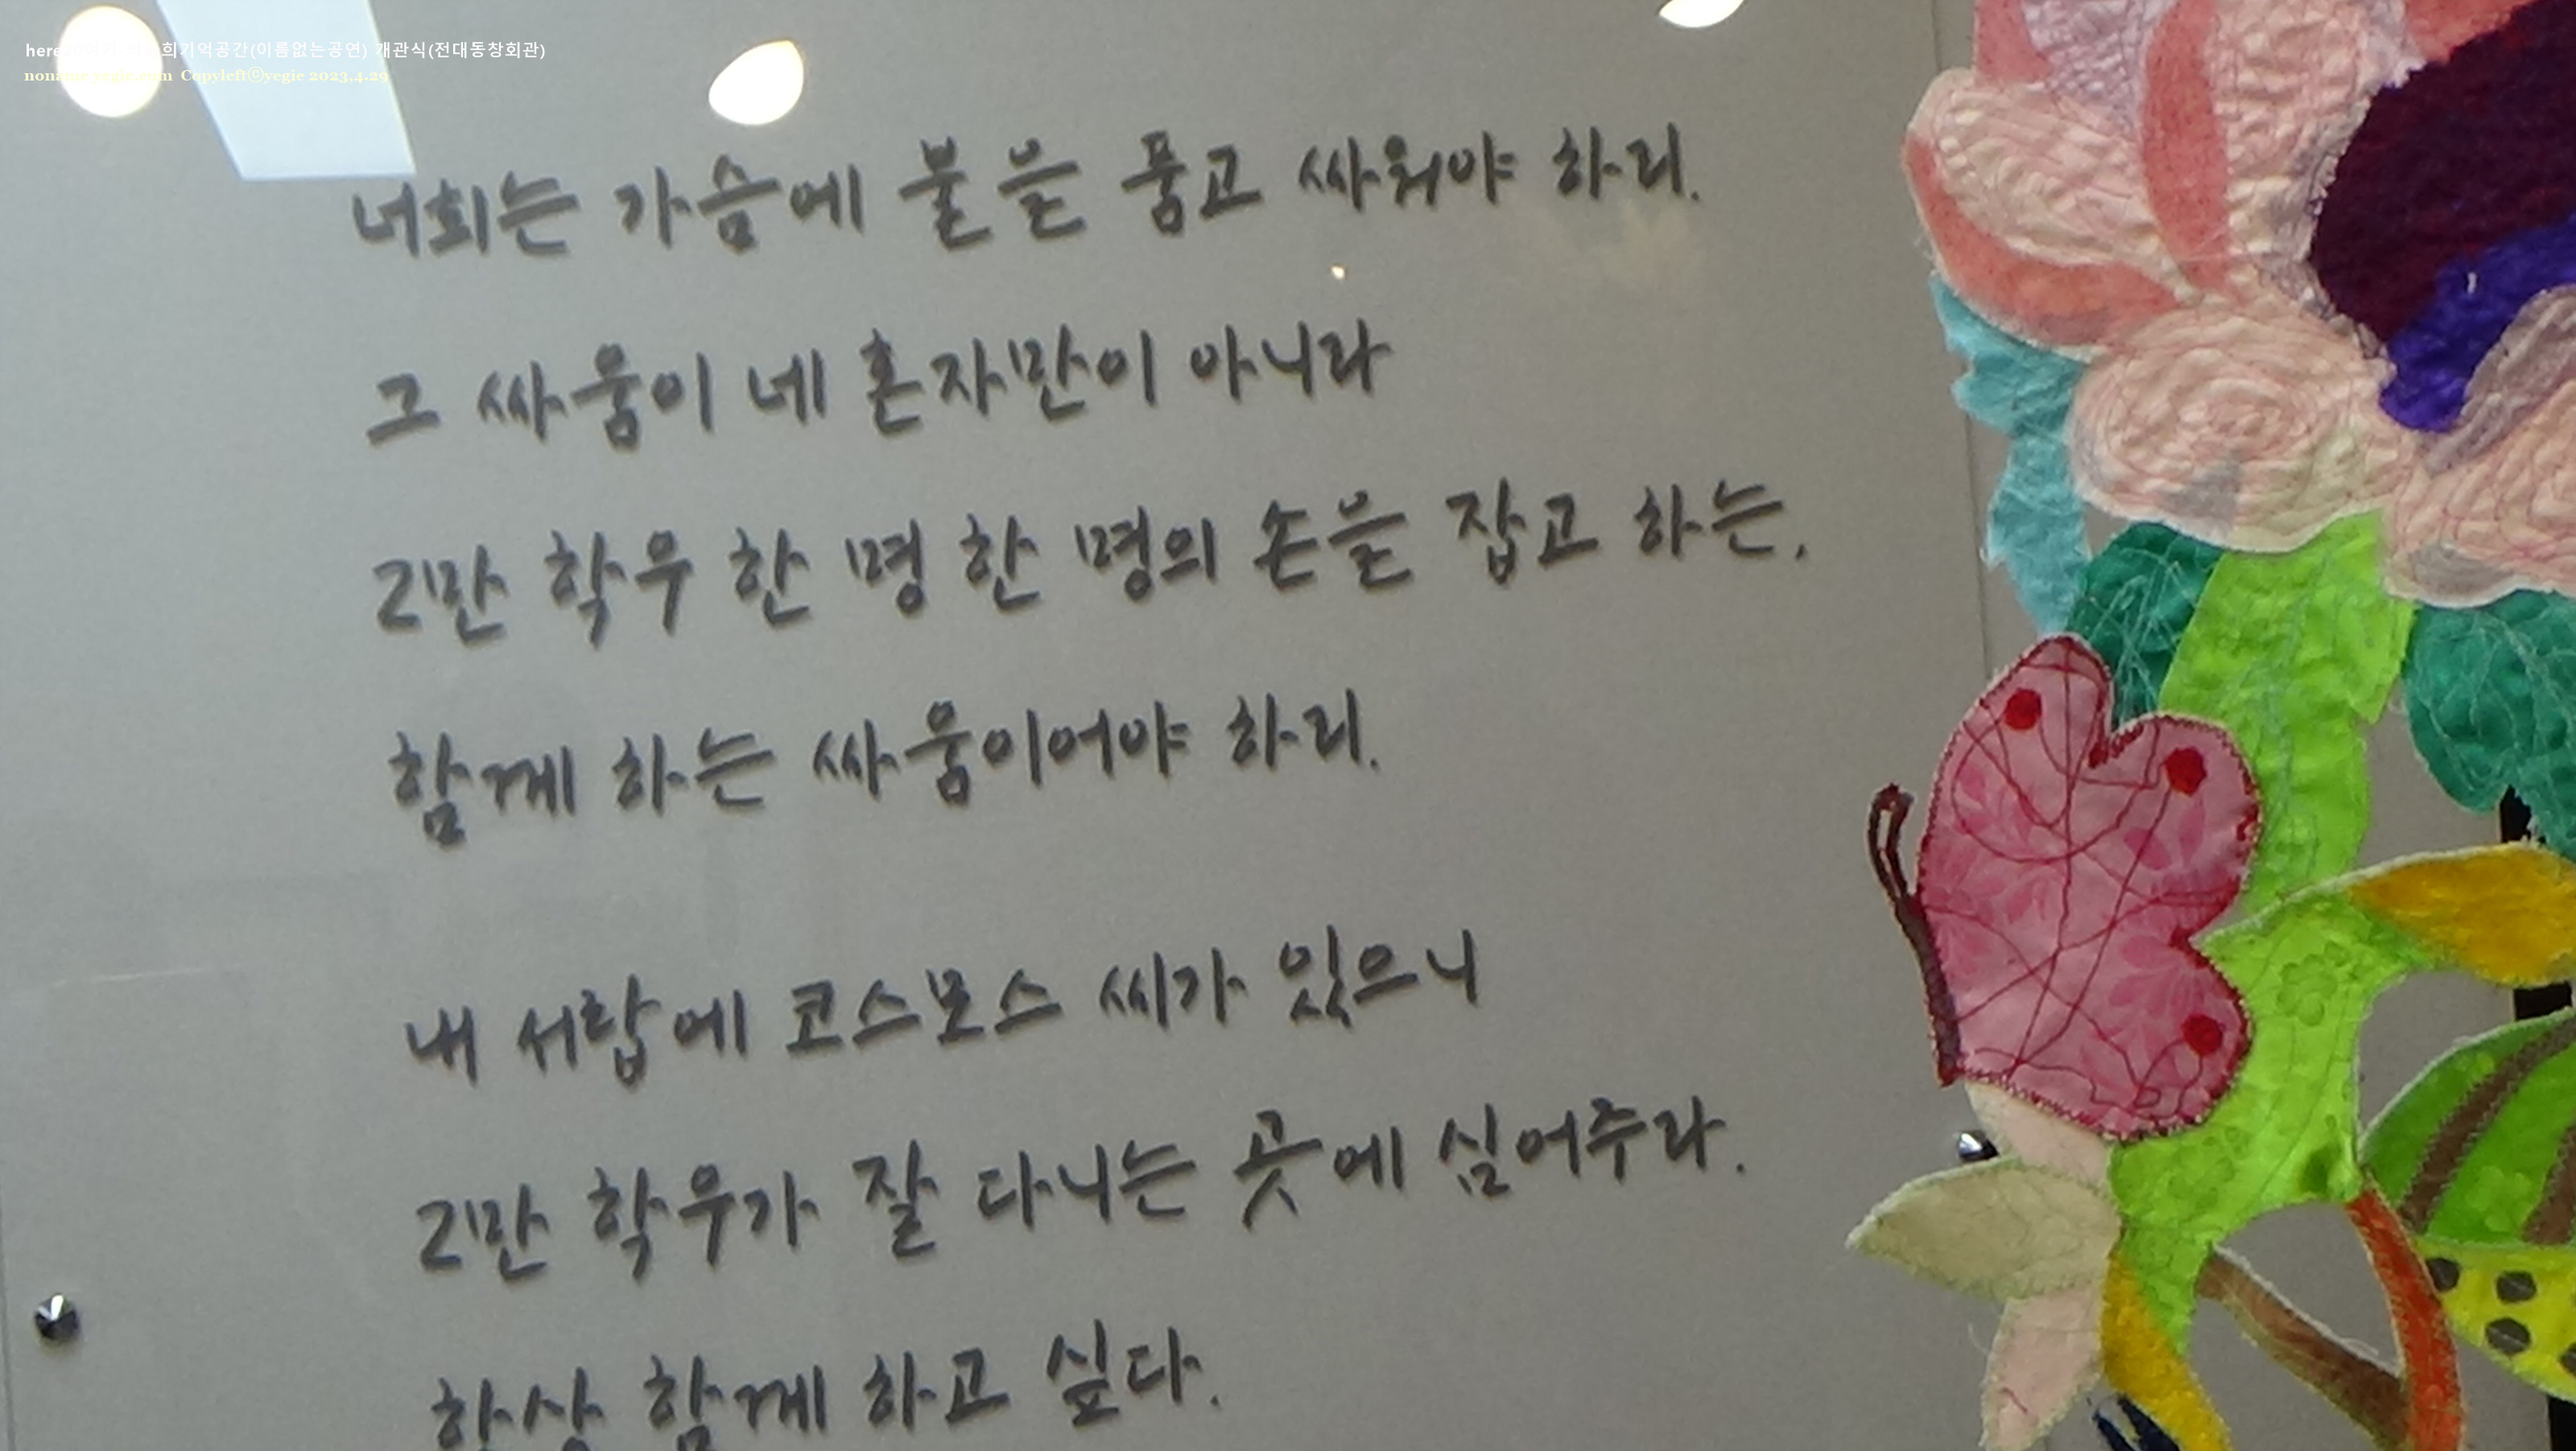 here 희기억공간(이름없는공연) 개관식(전대동창회관)
noname.yegie.com Copyleftⓒyegie 2023.4.29
너희는 가슴에 불을 품고 싸워야 하리.
그 싸움이 네 혼자만이 아니라
2만 학우 한 명 한 명의 손을 잡고 하는,
함께 하는 싸움이어야 하리.
내 서랍에 코스모스 씨가 있으니
2만 학우가 잘 다니는 곳에 심어주라.
항상 함께 하고 싶다.